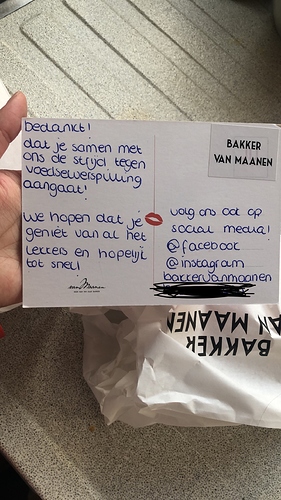 bedankt!
dat je samen met
ons de strijd tegen
voedselverspilling
aangaat!
We hopen dat je
geniet van al het
lekkers en hopelijk
tot snel!
van Maanen
BAKKER
VAN MAANEN
volg ons ook op
social media!
@facebook
@instagram
bakkervanmaanen
BAKKER
AN MAANEN